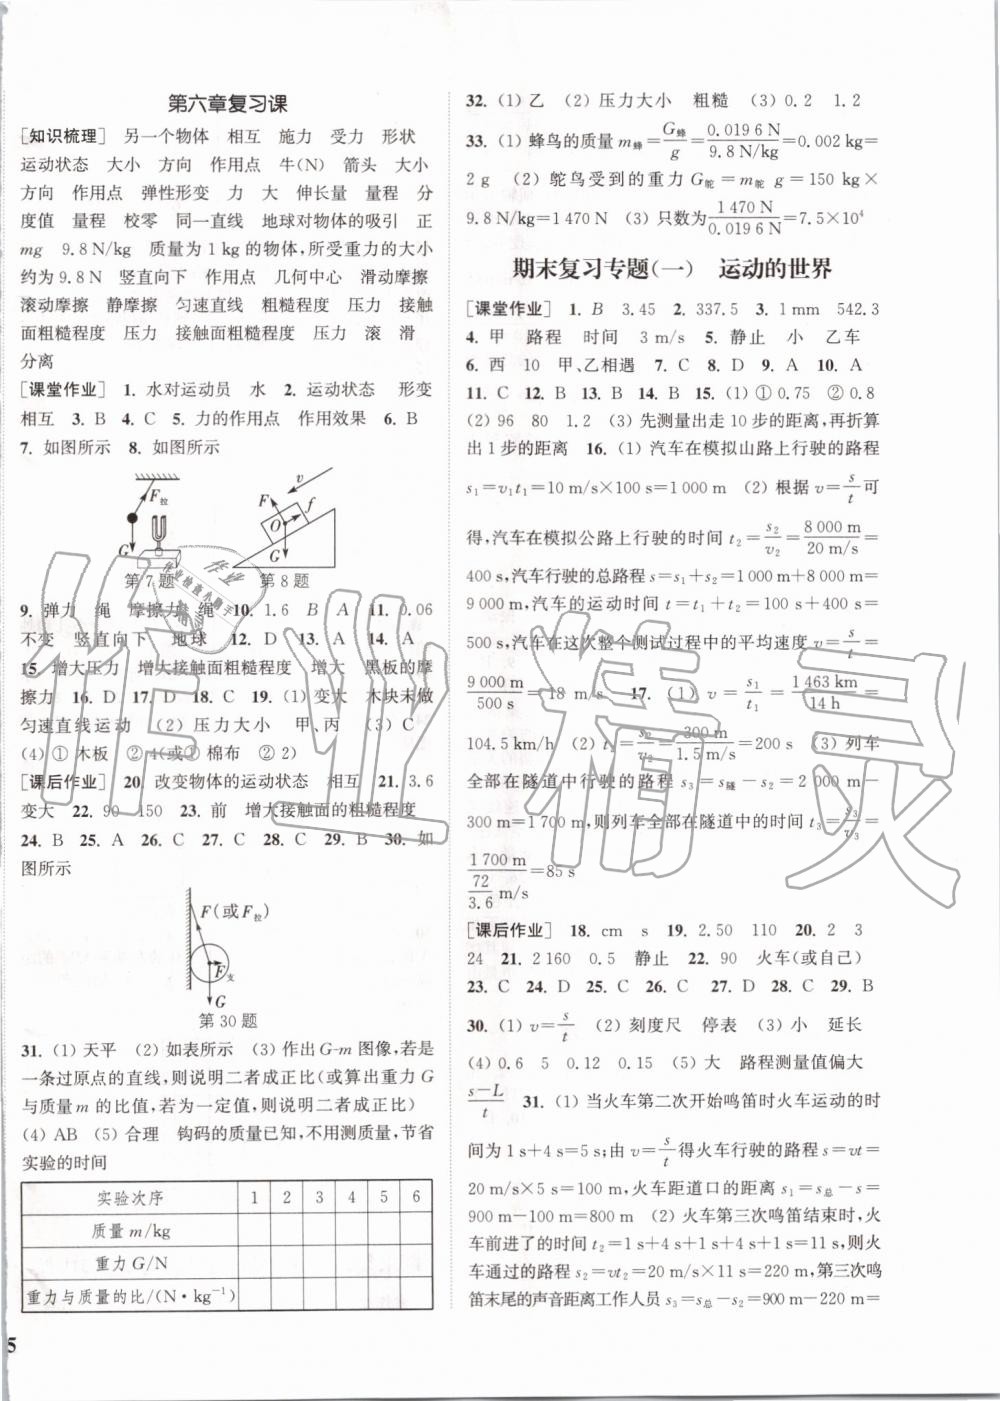 第六章复习课
[知识梳理] 另一个物体 相互 施力 受力 形状
运动状态 大小 方向 作用点 牛(N) 箭头 大小
方向 作用点 弹性形变 力 大 伸长量 量程 分
度值 量程 校零 同一直线 地球对物体的吸引 正
mg 9.8 N/kg 质量为 1 kg 的物体,所受重力的大小
约为 9.8 N 竖直向下 作用点 几何中心 滑动摩擦
滚动摩擦 静摩擦 匀速直线 粗糙程度 压力 接触
面粗糙程度 压力 接触面粗糙程度 压力 滚 滑
分离
[课堂作业] 1. 水对运动员 水 2. 运动状态 形变
相互 3. B 4. C 5. 力的作用点 作用效果 6. B
7. 如图所示 8. 如图所示
F拉
G
第 7 题
v
F f
O
G
第 8 题
9. 弹力 绳 摩擦力 绳 10. 1.6 B A 11. 0.06
不变 竖直向下 地球 12. D 13. A 14. A
15. 增大压力 增大接触面粗糙程度 增大 黑板的摩
擦力 16. D 17. D 18. C 19. (1) 变大 木块未做
匀速直线运动 (2) 压力大小 甲、丙 (3) C
(4) ① 木板 ② 4(或①) 棉布 ② 2)
[课后作业] 20. 改变物体的运动状态 相互 21. 3.6
变大 22. 90 150 23. 前 增大接触面的粗糙程度
24. B 25. A 26. C 27. C 28. C 29. B 30. 如
图所示
F(或F拉)
F支
G
第 30 题
31. (1) 天平 (2) 如表所示 (3) 作出 G-m 图像,若是
一条过原点的直线,则说明二者成正比(或算出重力 G
与质量 m 的比值,若为一定值,则说明二者成正比)
(4) AB (5) 合理 钩码的质量已知,不用测质量,节省
实验的时间
实验次序 1 2 3 4 5 6
质量 m/kg
重力 G/N
重力与质量的比/(N·kg⁻¹)
5
32. (1) 乙 (2) 压力大小 粗糙 (3) 0.2 1.2
33. (1) 蜂鸟的质量 m蜂=G蜂/g=0.0196 N/9.8 N/kg=0.002 kg=
2 g (2) 鸵鸟受到的重力 G鸵=m鸵 g=150 kg×
9.8 N/kg=1 470 N (3) 只数为 1 470 N/0.0196 N=7.5×10⁴
期末复习专题(一) 运动的世界
[课堂作业] 1. B 3.45 2. 337.5 3. 1 mm 542.3
4. 甲 路程 时间 3 m/s 5. 静止 小 乙车
6. 西 10 甲、乙相遇 7. C 8. D 9. A 10. A
11. C 12. B 13. B 14. B 15. (1) ① 0.75 ② 0.8
(2) 96 80 1.2 (3) 先测量出走 10 步的距离,再折算
出 1 步的距离 16. (1) 汽车在模拟山路上行驶的路程
s₁=v₁t₁=10 m/s×100 s=1 000 m (2) 根据 v=s/t 可
得,汽车在模拟公路上行驶的时间 t₂=s₂/v₂=8 000 m/20 m/s=
400 s,汽车行驶的总路程 s=s₁+s₂=1 000 m+8 000 m=
9 000 m,汽车的运动时间 t=t₁+t₂=100 s+400 s=
500 s,汽车在这次整个测试过程中的平均速度 v=s/t=
9 000 m/500 s=18 m/s 17. (1) v=s₁/t₁=1 463 km/14 h=
104.5 km/h (2) t₂=s₂/v₂=300 m/1.5 m/s=200 s (3) 列车
全部在隧道中行驶的路程 s₃=s隧-s₂=2 000 m-
300 m=1 700 m,则列车全部在隧道中的时间 t₃=s₃/v₃=
1 700 m/(72/3.6 m/s)=85 s
[课后作业] 18. cm s 19. 2.50 110 20. 2 3
24 21. 2 160 0.5 静止 22. 90 火车(或自己)
23. C 24. D 25. C 26. D 27. D 28. C 29. B
30. (1) v=s/t (2) 刻度尺 停表 (3) 小 延长
(4) 0.6 5 0.12 0.15 (5) 大 路程测量值偏大
s-L/t 31. (1) 当火车第二次开始鸣笛时火车运动的时
间为 1 s+4 s=5 s;由 v=s/t 得火车行驶的路程 s=vt=
20 m/s×5 s=100 m,火车距道口的距离 s₁=s总-s=
900 m-100 m=800 m (2) 火车第三次鸣笛结束时,火
车前进了的时间 t₂=1 s+4 s+1 s+4 s+1 s=11 s,则火
车通过的路程 s₂=vt₂=20 m/s×11 s=220 m,第三次鸣
笛末尾的声音距离工作人员 s₃=s总-s₂=900 m-220 m=
作业精灵